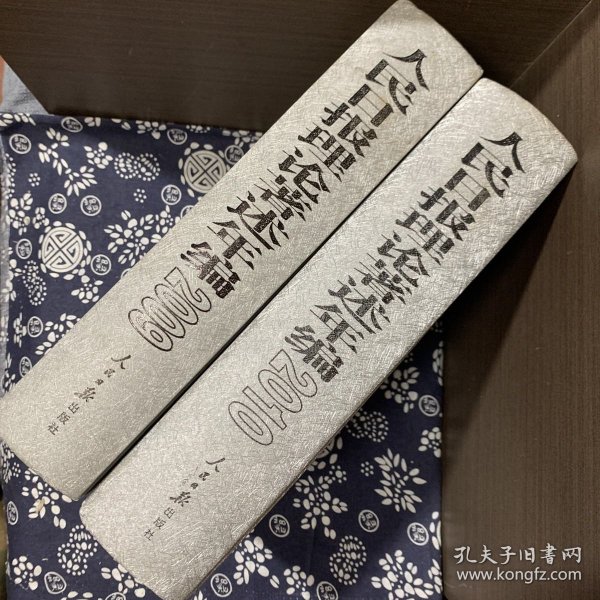 人民日报理论著述年编
2009
人民日报出版社
人民日报理论著述年编
2010
人民日报出版社
孔夫子旧书网
www.kongfz.com